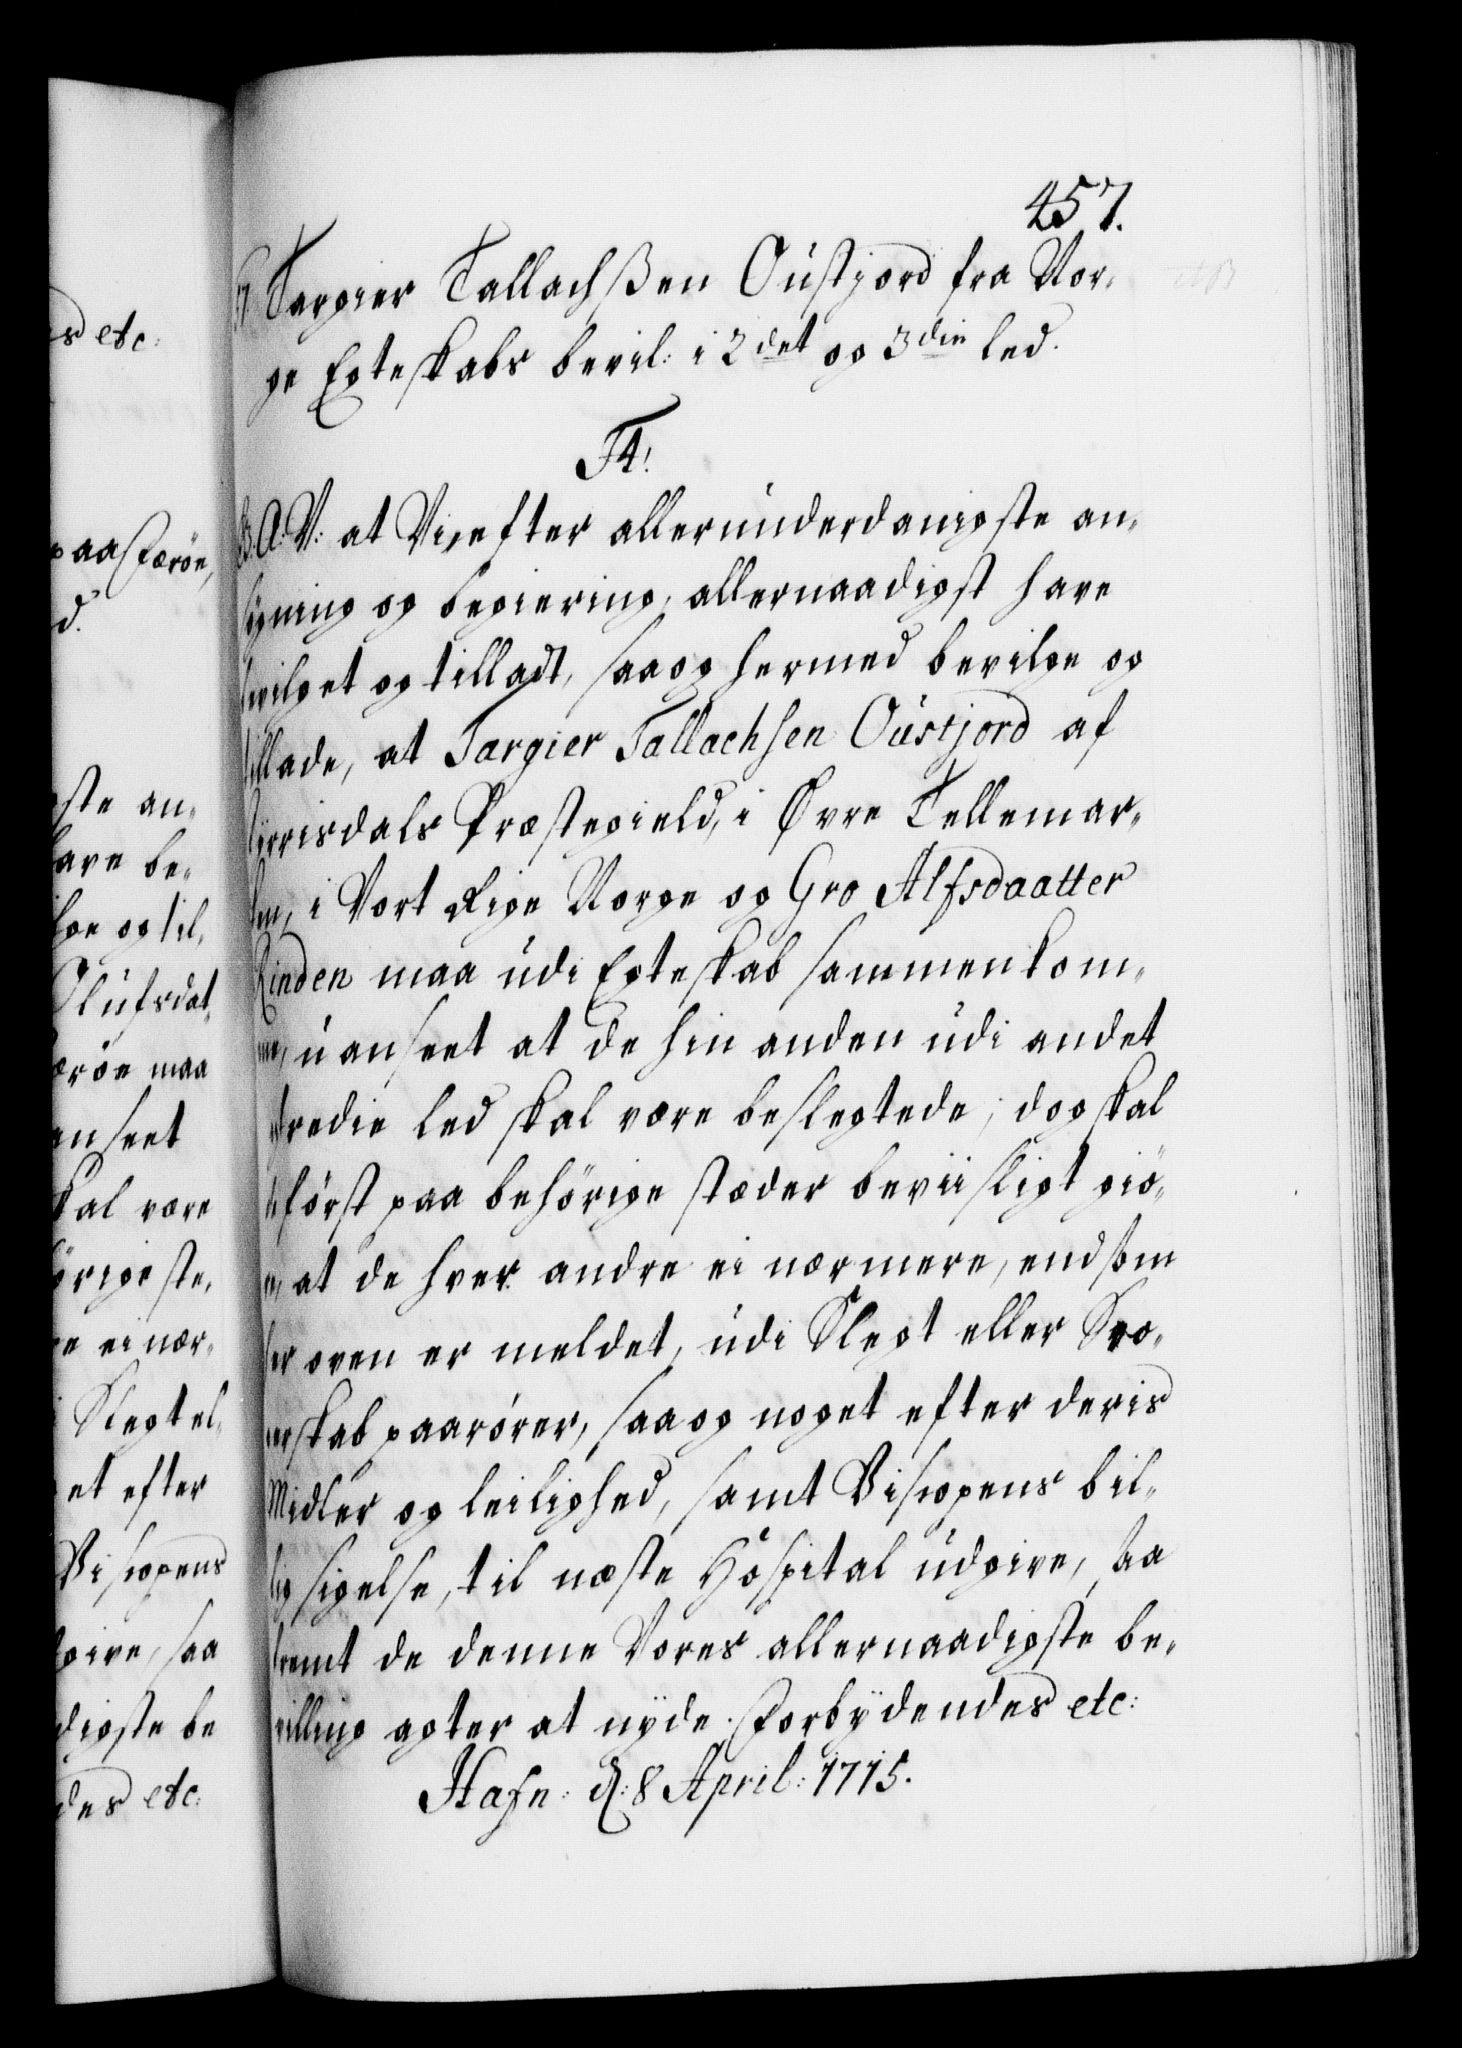 457.
Targier Tallachßen Oustjord fra Nor-
ge Egteskabs bevil: i 2det og 3die led.
F4!
B.A.V: at Vi, efter allerunderdanigste an-
søgning og begiering, allernaadigst have
bevilget og tilladt, saa og hermed bevilge og
tillade, at Targier Tallachsen Oustjord af
Hvirrisdals Præstegield, i Øvre Tellemar-
ken, i Vort Rige Norge og Gro Alfsdaatter
Rinden maa udi Egteskab sammenkom-
me, uanseet at de hin anden udi andet
tredie led skal være beslegtede; dog skal
de först paa behörige stæder beviisligt giö-
re, at de hver andre ei nærmere, end som
her oven er meldet, udi Slegt eller Svo-
gerskab paarörer, saa og noget efter deris
Midler og leilighed, samt Biscopens bil-
lig sigelse, til næste Hospital udgive, saa
fremt de denne Vores allernaadigste be-
villing agter at nyde. Forbydendes etc:
Hafn: d: 8 April: 1715.
s etc:
paa Færöe,
d.
gste an-
have be-
lge og til-
Olufsdat-
æröe maa
anseet
skal være
örige stæ-
re ei nær-
i Slegt el-
et efter
Biscopens
dgive, saa
digste be
des etc: